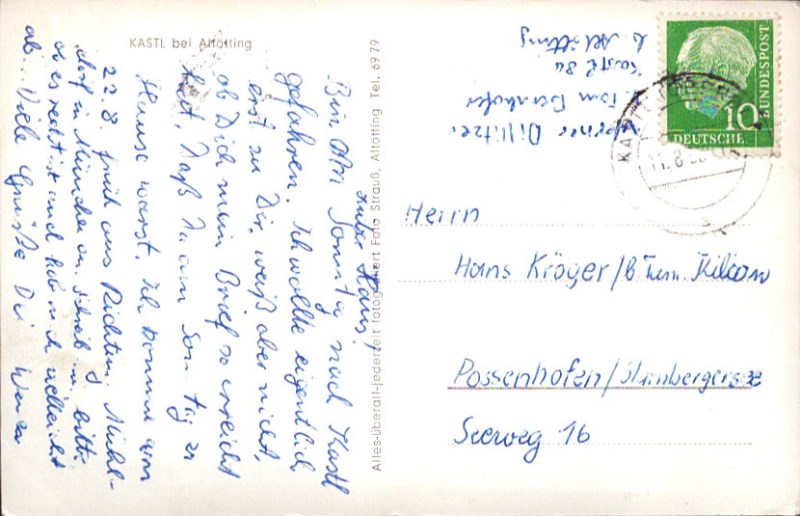 KASTL bei Altötting
Lieber Hans!
Bin am Sonntag nach Kastl
gefahren. Ich wollte eigentlich
erst zu Dir, weiß aber nicht,
ob Dich mein Brief so erreicht
hat, daß Du am Sonntag zu
Hause warst. Ich komme am
22.8. früh aus Richtung Mühl-
dorf in München an. Schreib mir bitte,
ob es recht ist und hol mich vielleicht
ab. Viele Grüße Dein Werner
Alles-überall-jederzeit fotografiert Foto Strauß, Altötting Tel. 6979
Werner
b. Fam.
Kastl 84
b. Altötting
10
DEUTSCHE
BUNDESPOST
KASTL
Herrn
Hans Kröger/b. Fam. Kilian
Possenhofen/Starnbergersee
Seeweg 16